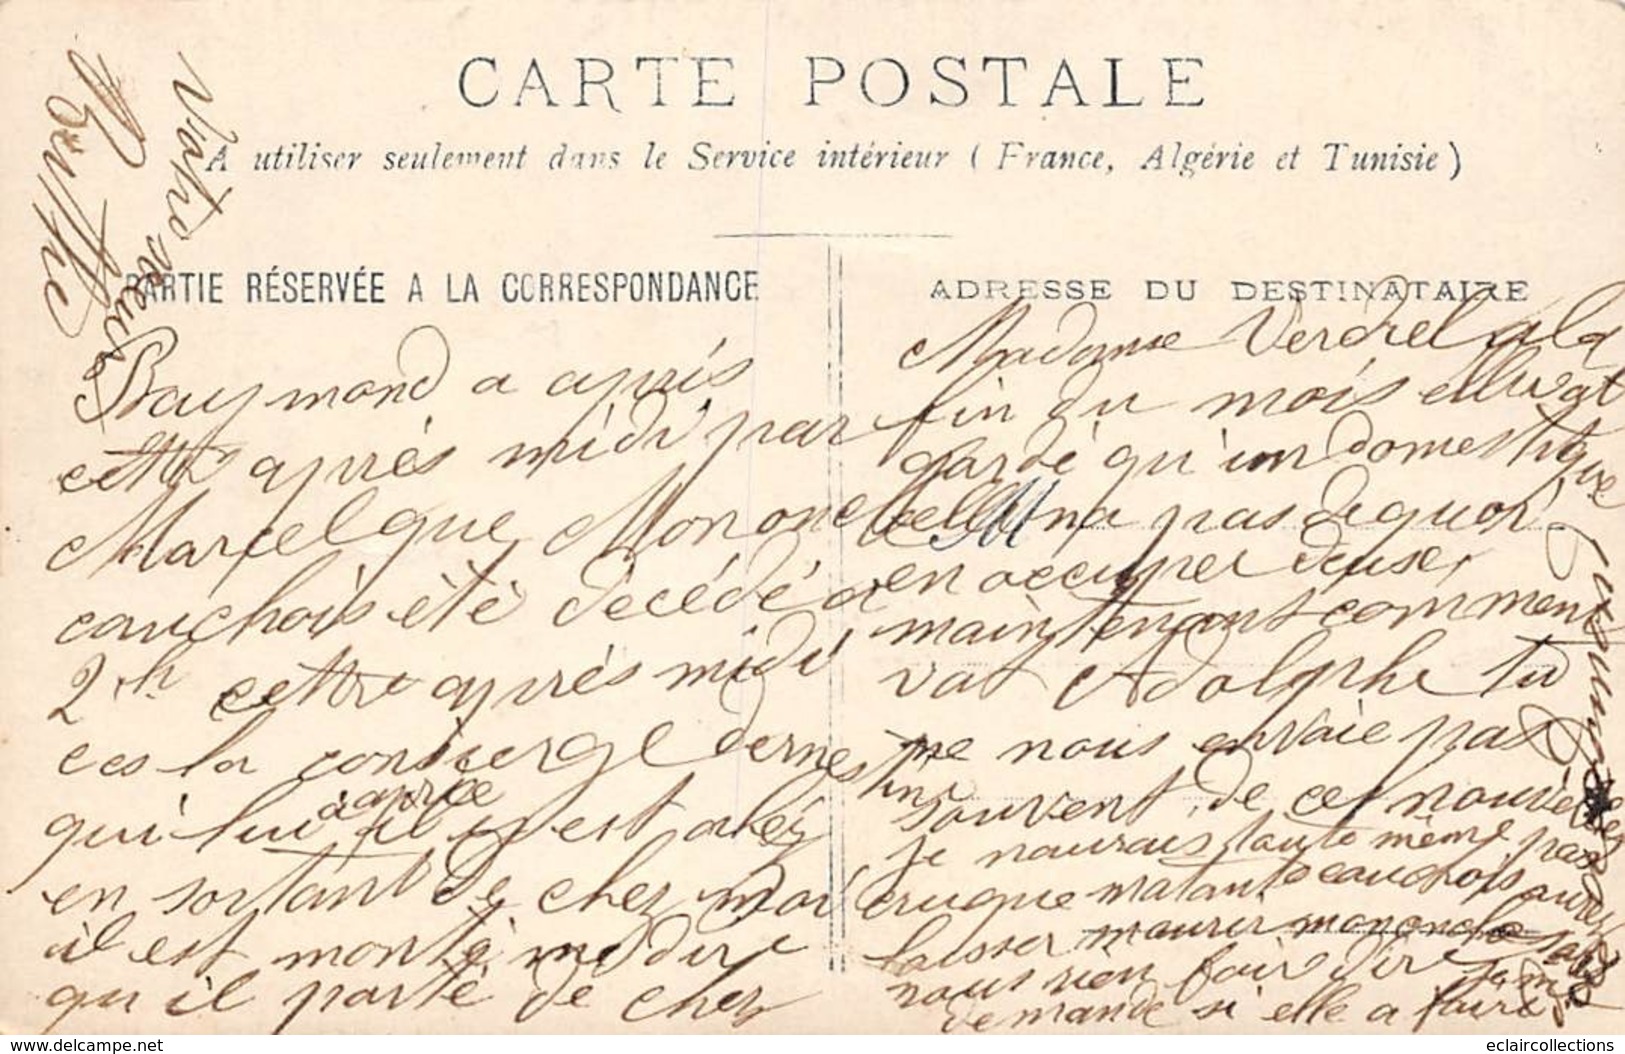 CARTE POSTALE
A utiliser seulement dans le Service intérieur ( France, Algérie et Tunisie )
PARTIE RÉSERVÉE A LA CORRESPONDANCE
Raymond a apris
cette après midi par
Marcel que Mononcle
cauchois été décédé a
2h cette après midi
ces la concierge dernestine
qui lui a aprie
il y est allez
en sortant de chez moi
il est monté me dire
qu il parté de chez
ADRESSE DU DESTINATAIRE
Madame Verdrel ala
fin du mois elle vat
gardé qu'un domestique
elle na pas de quoi
en occuper deuse
maintenant comment
vat Adolphe tu
ne nous envoie pas
souvent de ces nouvelles
je naurais toute même pas
cru que matante cauchois aurai
laisser mourir mononcle sans
nous rien fair dire je me
demande si elle a faire
Votre soeur
Berthe
eclaircollections
www.delcampe.net